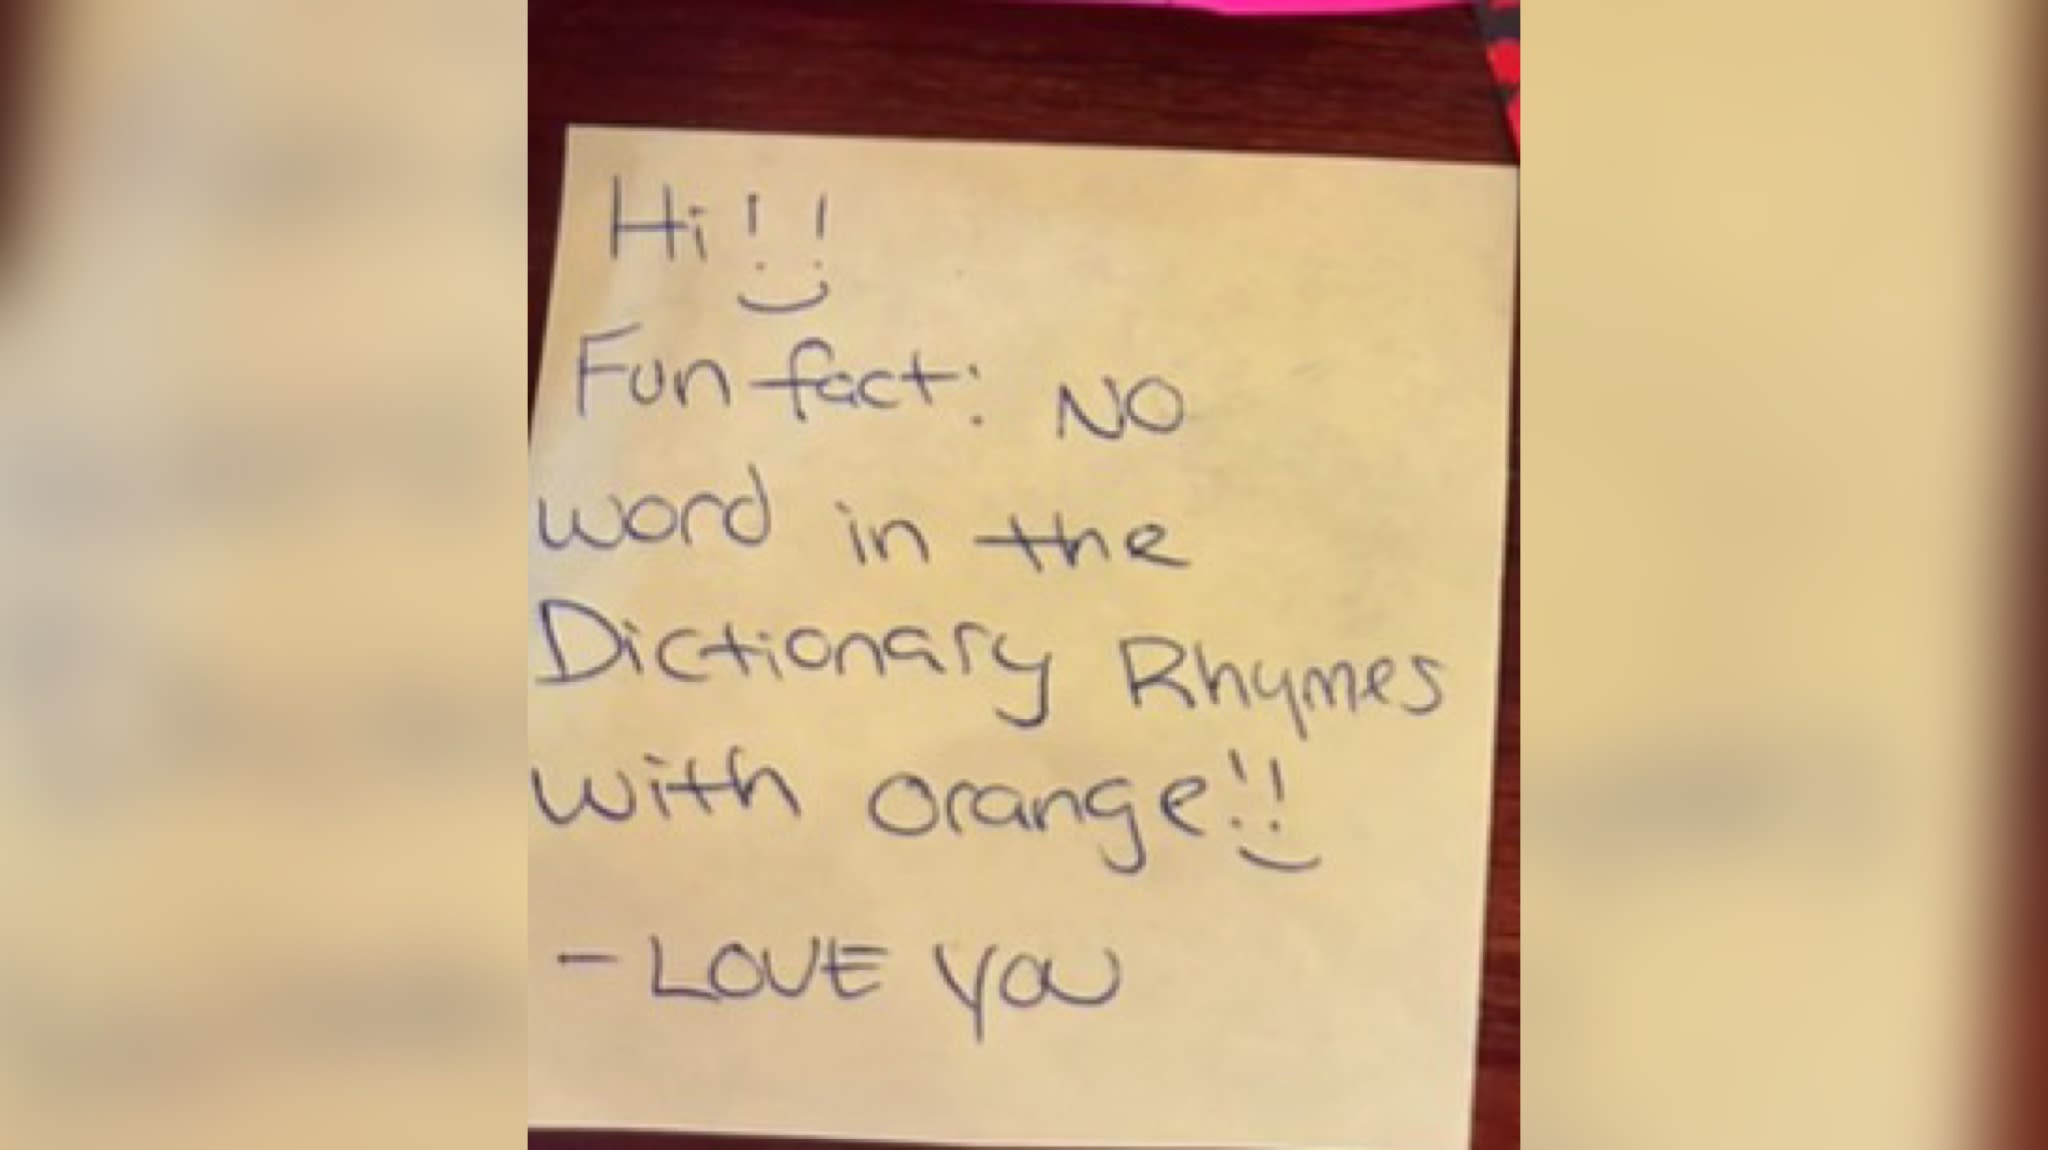 Hi!!
Fun fact: NO
word in the
Dictionary Rhymes
with orange!!
- LOVE YOU